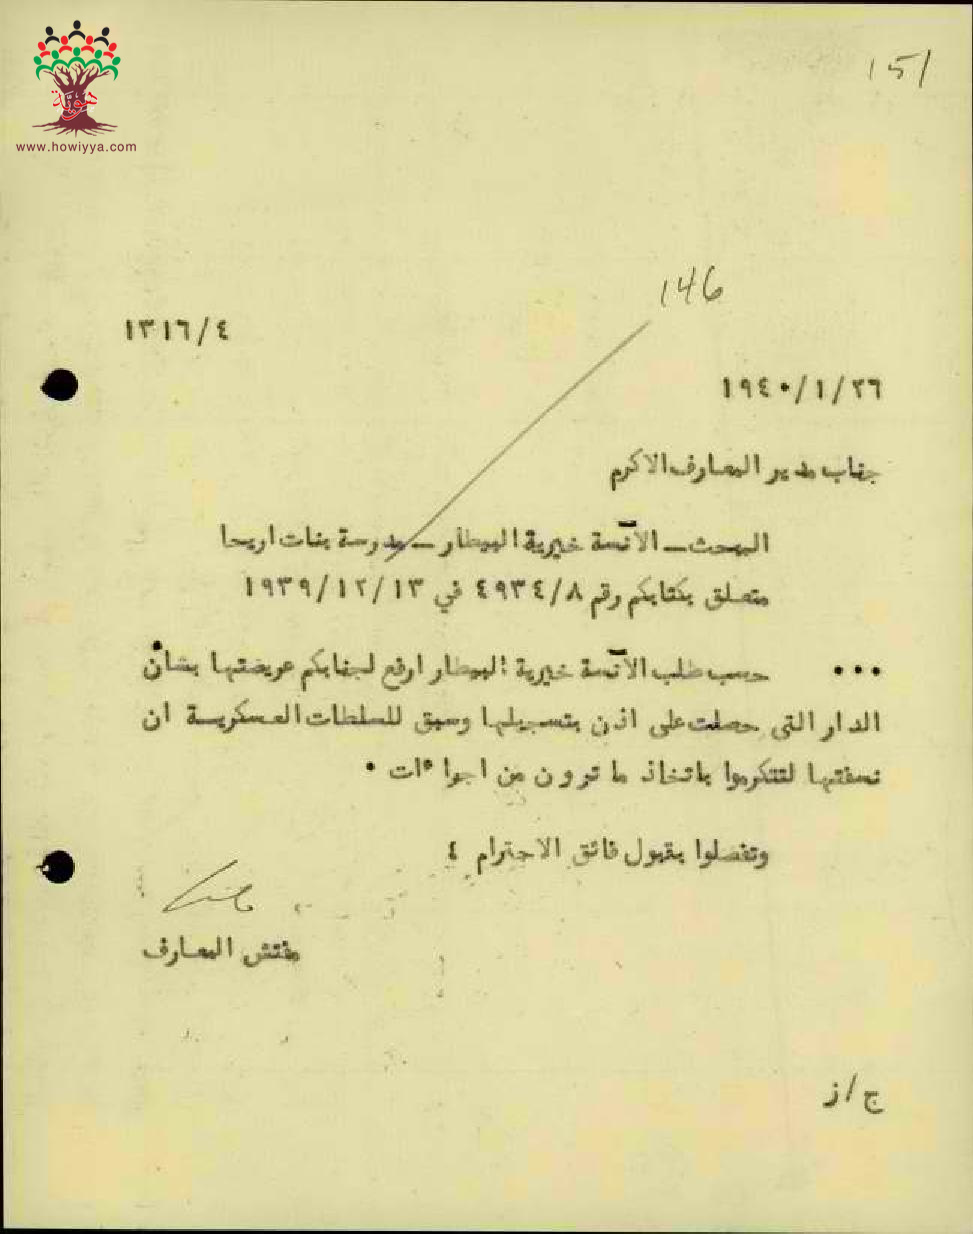 هوية
www.howiyya.com
151
146
١٣١٦/٤
١٩٤٠/١/٢٦
جناب مدير المعارف الاكرم
البحث – الآنسة خيرية البيطار – مدرسة بنات اريحا
متعلق بكتابكم رقم ٤٩٣٤/٨ في ١٩٣٩/١٢/١٣
... حسب طلب الآنسة خيرية البيطار ارفع لجنابكم عريضتها بشأن
الدار التي حصلت على اذن بتسجيلها وسبق للسلطات العسكرية ان
نسفتها لتتكرموا باتخاذ ما ترون من اجراءات .
وتفضلوا بقبول فائق الاحترام ٤
مفتش المعارف
ج/ز